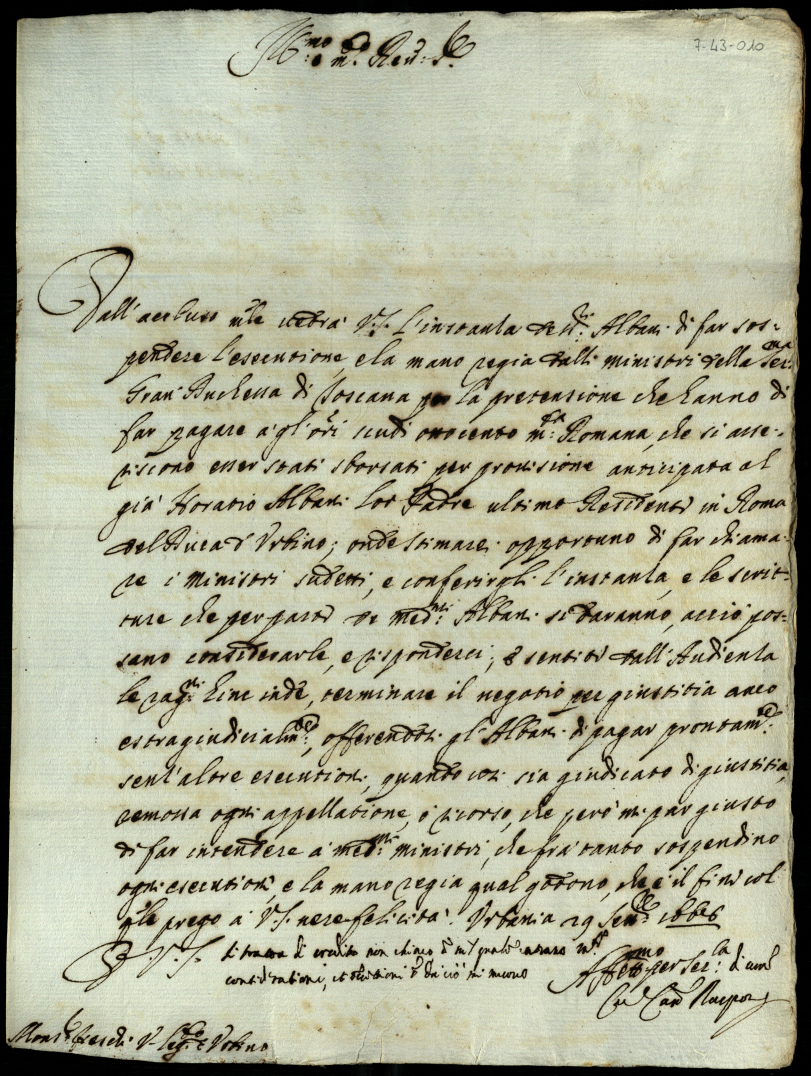 7-43-010
Ill.mo e m.to Rev: S.re
Dall' accluso m.le vedrà V.S. l'instanza de SS.ri Albani di far sos=
pendere l'esecutione, e la mano regia dalli ministri della Ser:ma
Gran Duchessa di Toscana per la pretensione che hanno di
far pagare à gl'ori scudi ottocento m.ta Romana, che si asse=
riscono esser stati sborsati per provisione anticipata al
già Horatio Albani lor Padre ultimo Residente in Roma
del Duca d'Urbino; onde stimarei opportuno di far chiama=
re i ministri sudetti, e conferirgli l'instanza, e le scrit=
ture che per parte de med:mi Albani si daranno, acciò pos=
sano considerarle, e risponderci; e sentite dall'Audienza
le rag:ni hinc inde, terminare il negotio per giustitia anco
estragiudicialm:te, offerendosi gl'Albani di pagar prontam:te
senz'altre esecutioni, quando così sia giudicato di giustitia,
remossa ogni appellatione, ò ricorso, che però mi par giusto
di far intendere à med:mi ministri, che frà tanto sospendino
ogni esecutione, e la mano regia qual godono, che è il fine col
q.le prego à V.S. vere felicità. Urbania 29 Sett:re 1666
D. V. S. si tratta di credito non chiaro e nel quale entrano m.te
considerationi, et
Aff.mo per ser:la di core
Card. Rasponi
Mons.r V. Leg.to d'Urbino